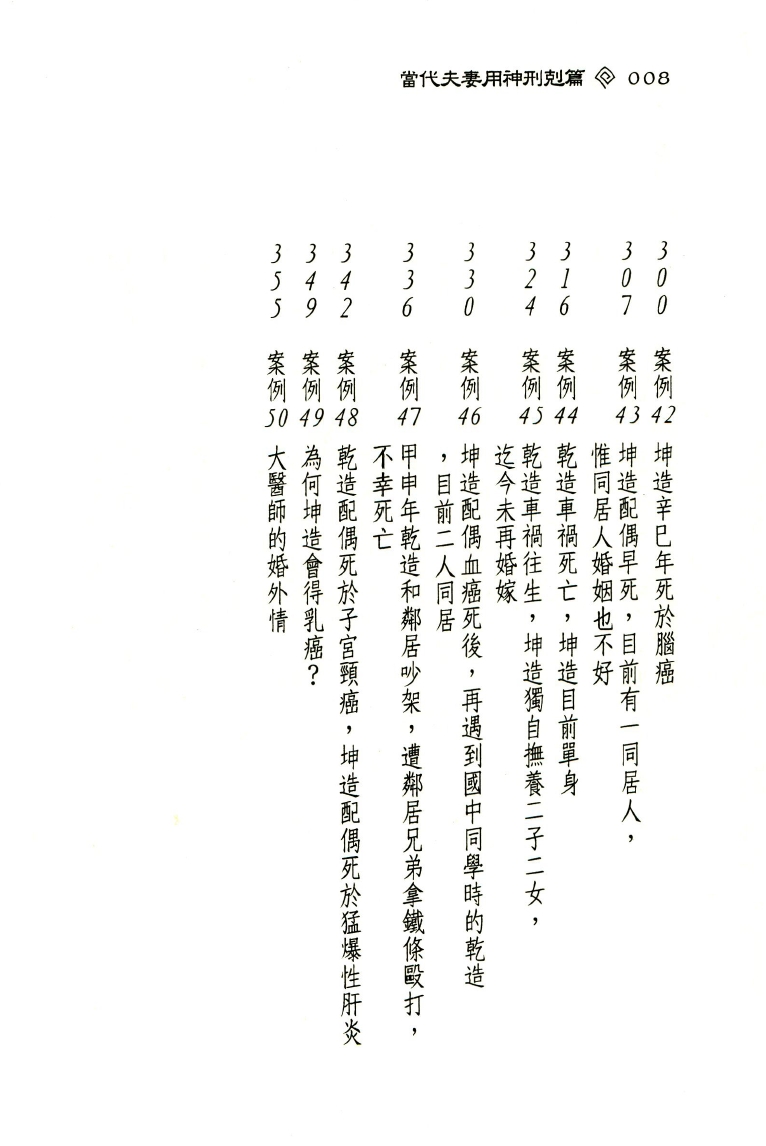 當代夫妻用神刑剋篇 008
300 案例42 坤造辛巳年死於腦癌
307 案例43 坤造配偶早死，目前有一同居人，
惟同居人婚姻也不好
316 案例44 乾造車禍死亡，坤造目前單身
324 案例45 乾造車禍往生，坤造獨自撫養二子二女，
迄今未再婚嫁
330 案例46 坤造配偶血癌死後，再遇到國中同學時的乾造
，目前二人同居
336 案例47 甲申年乾造和鄰居吵架，遭鄰居兄弟拿鐵條毆打，
不幸死亡
342 案例48 乾造配偶死於子宮頸癌，坤造配偶死於猛爆性肝炎
349 案例49 為何坤造會得乳癌？
355 案例50 大醫師的婚外情